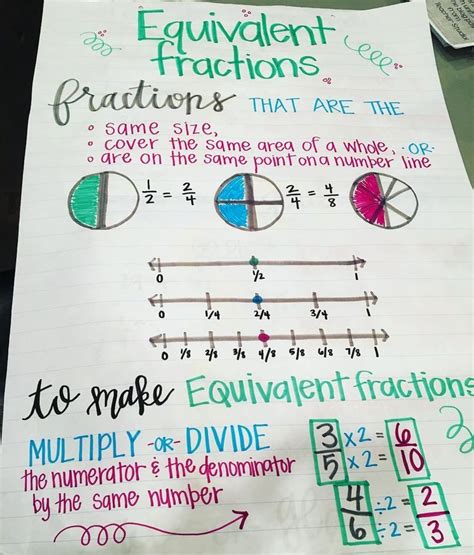 Equivalent
fractions
fractions THAT ARE THE
◦ same size,
◦ cover the same area of a whole, -OR-
◦ are on the same point on a number line
1/2 = 2/4 2/4 = 4/8
0 1/2 1
0 1/4 2/4 3/4 1
0 1/8 2/8 3/8 4/8 5/8 6/8 7/8 1
to make Equivalent fractions
MULTIPLY -OR- DIVIDE
the numerator & the denominator
by the same number
3/5 x2 = x2 = 6/10
4/6 ÷2 = ÷2 = 2/3